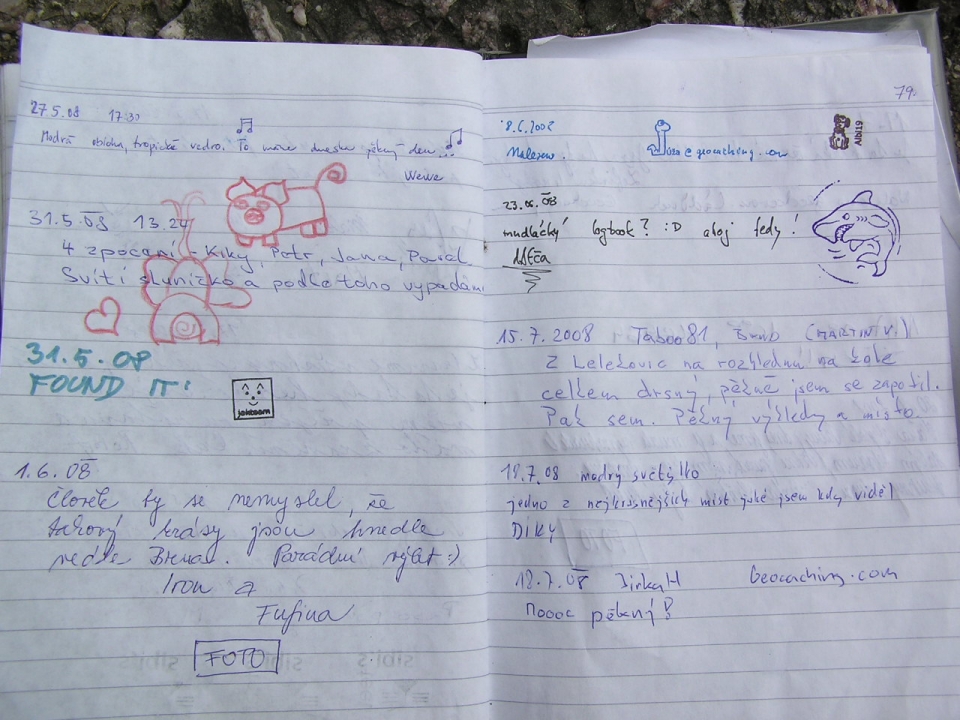 27.5.08 17:30
Modrá obloha, tropické vedro. To máme dneska pěkný den...
Wewe
31.5.08 13.24
4 zpocaní - Kiky, Petr, Jana, Pavel
Svítí sluníčko a podle toho vypadáme
31.5.08
FOUND IT!
jekbsam
1.6.08
Človek by se nemyslel, že
takový krásy jsou hnedle
vedle Brna. Parádní výlet :)
Iron a
Fufina
FOTO
79.
8.6.2008
@geocaching.com
Albi19
23.06.08
mudlácký logbook? :D ahoj tedy!
15.7.2008 Taboo81, Brno (MARTIN V.)
Z Lelekovic na rozhlednu na kole
celkem drsný, pěkně jsem se zapotil.
Pak sem. Pěkný výhledy a místo.
18.7.08 modrý světýlko
jedno z nejkrásnějších míst jaké jsem kdy viděl
DÍKY
18.7.08 JirkaH Geocaching.com
Moooc pěkný!